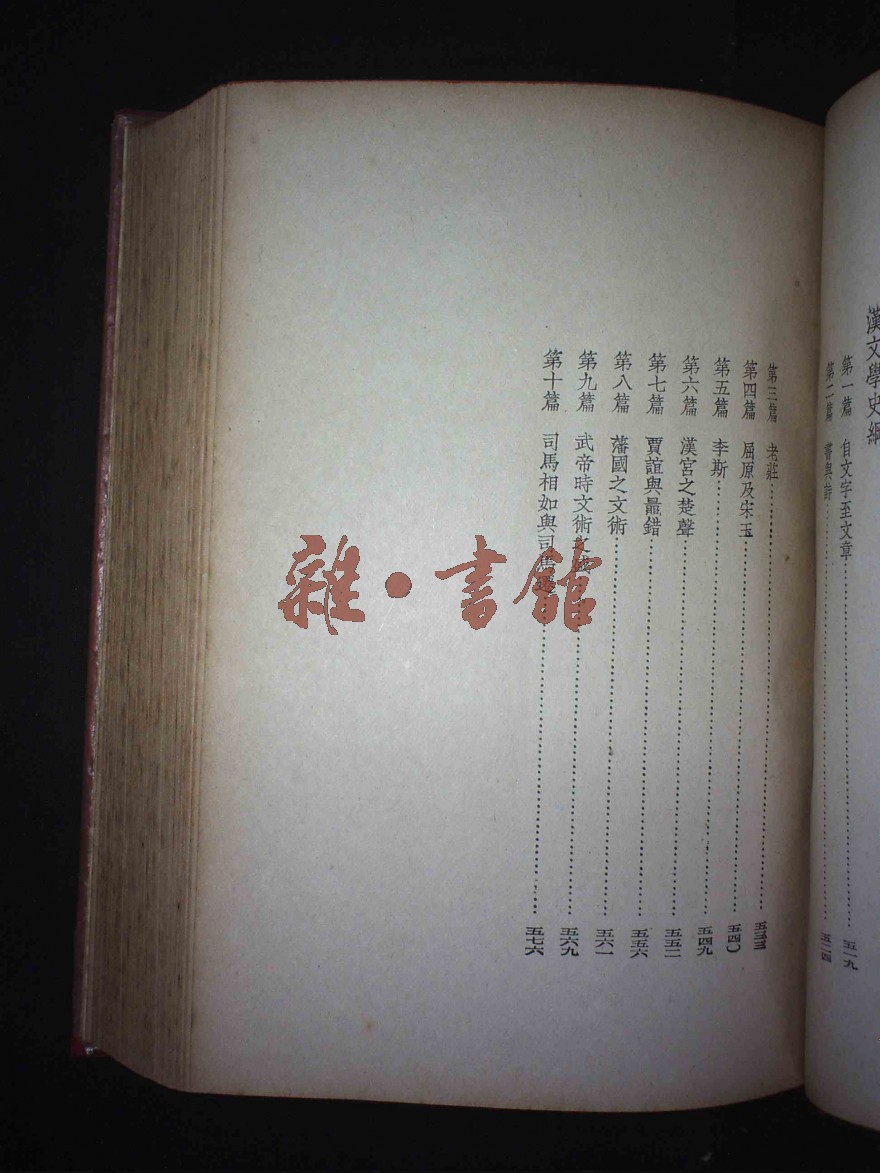 漢文學史綱
第一篇 自文字至文章……五一九
第二篇 書與詩……五二四
第三篇 老莊……五三三
第四篇 屈原及宋玉……五四〇
第五篇 李斯……五四九
第六篇 漢宮之楚聲……五五二
第七篇 賈誼與鼂錯……五五六
第八篇 藩國之文術……五六一
第九篇 武帝時文術……五六九
第十篇 司馬相如與司馬遷……五七六
雜·書館